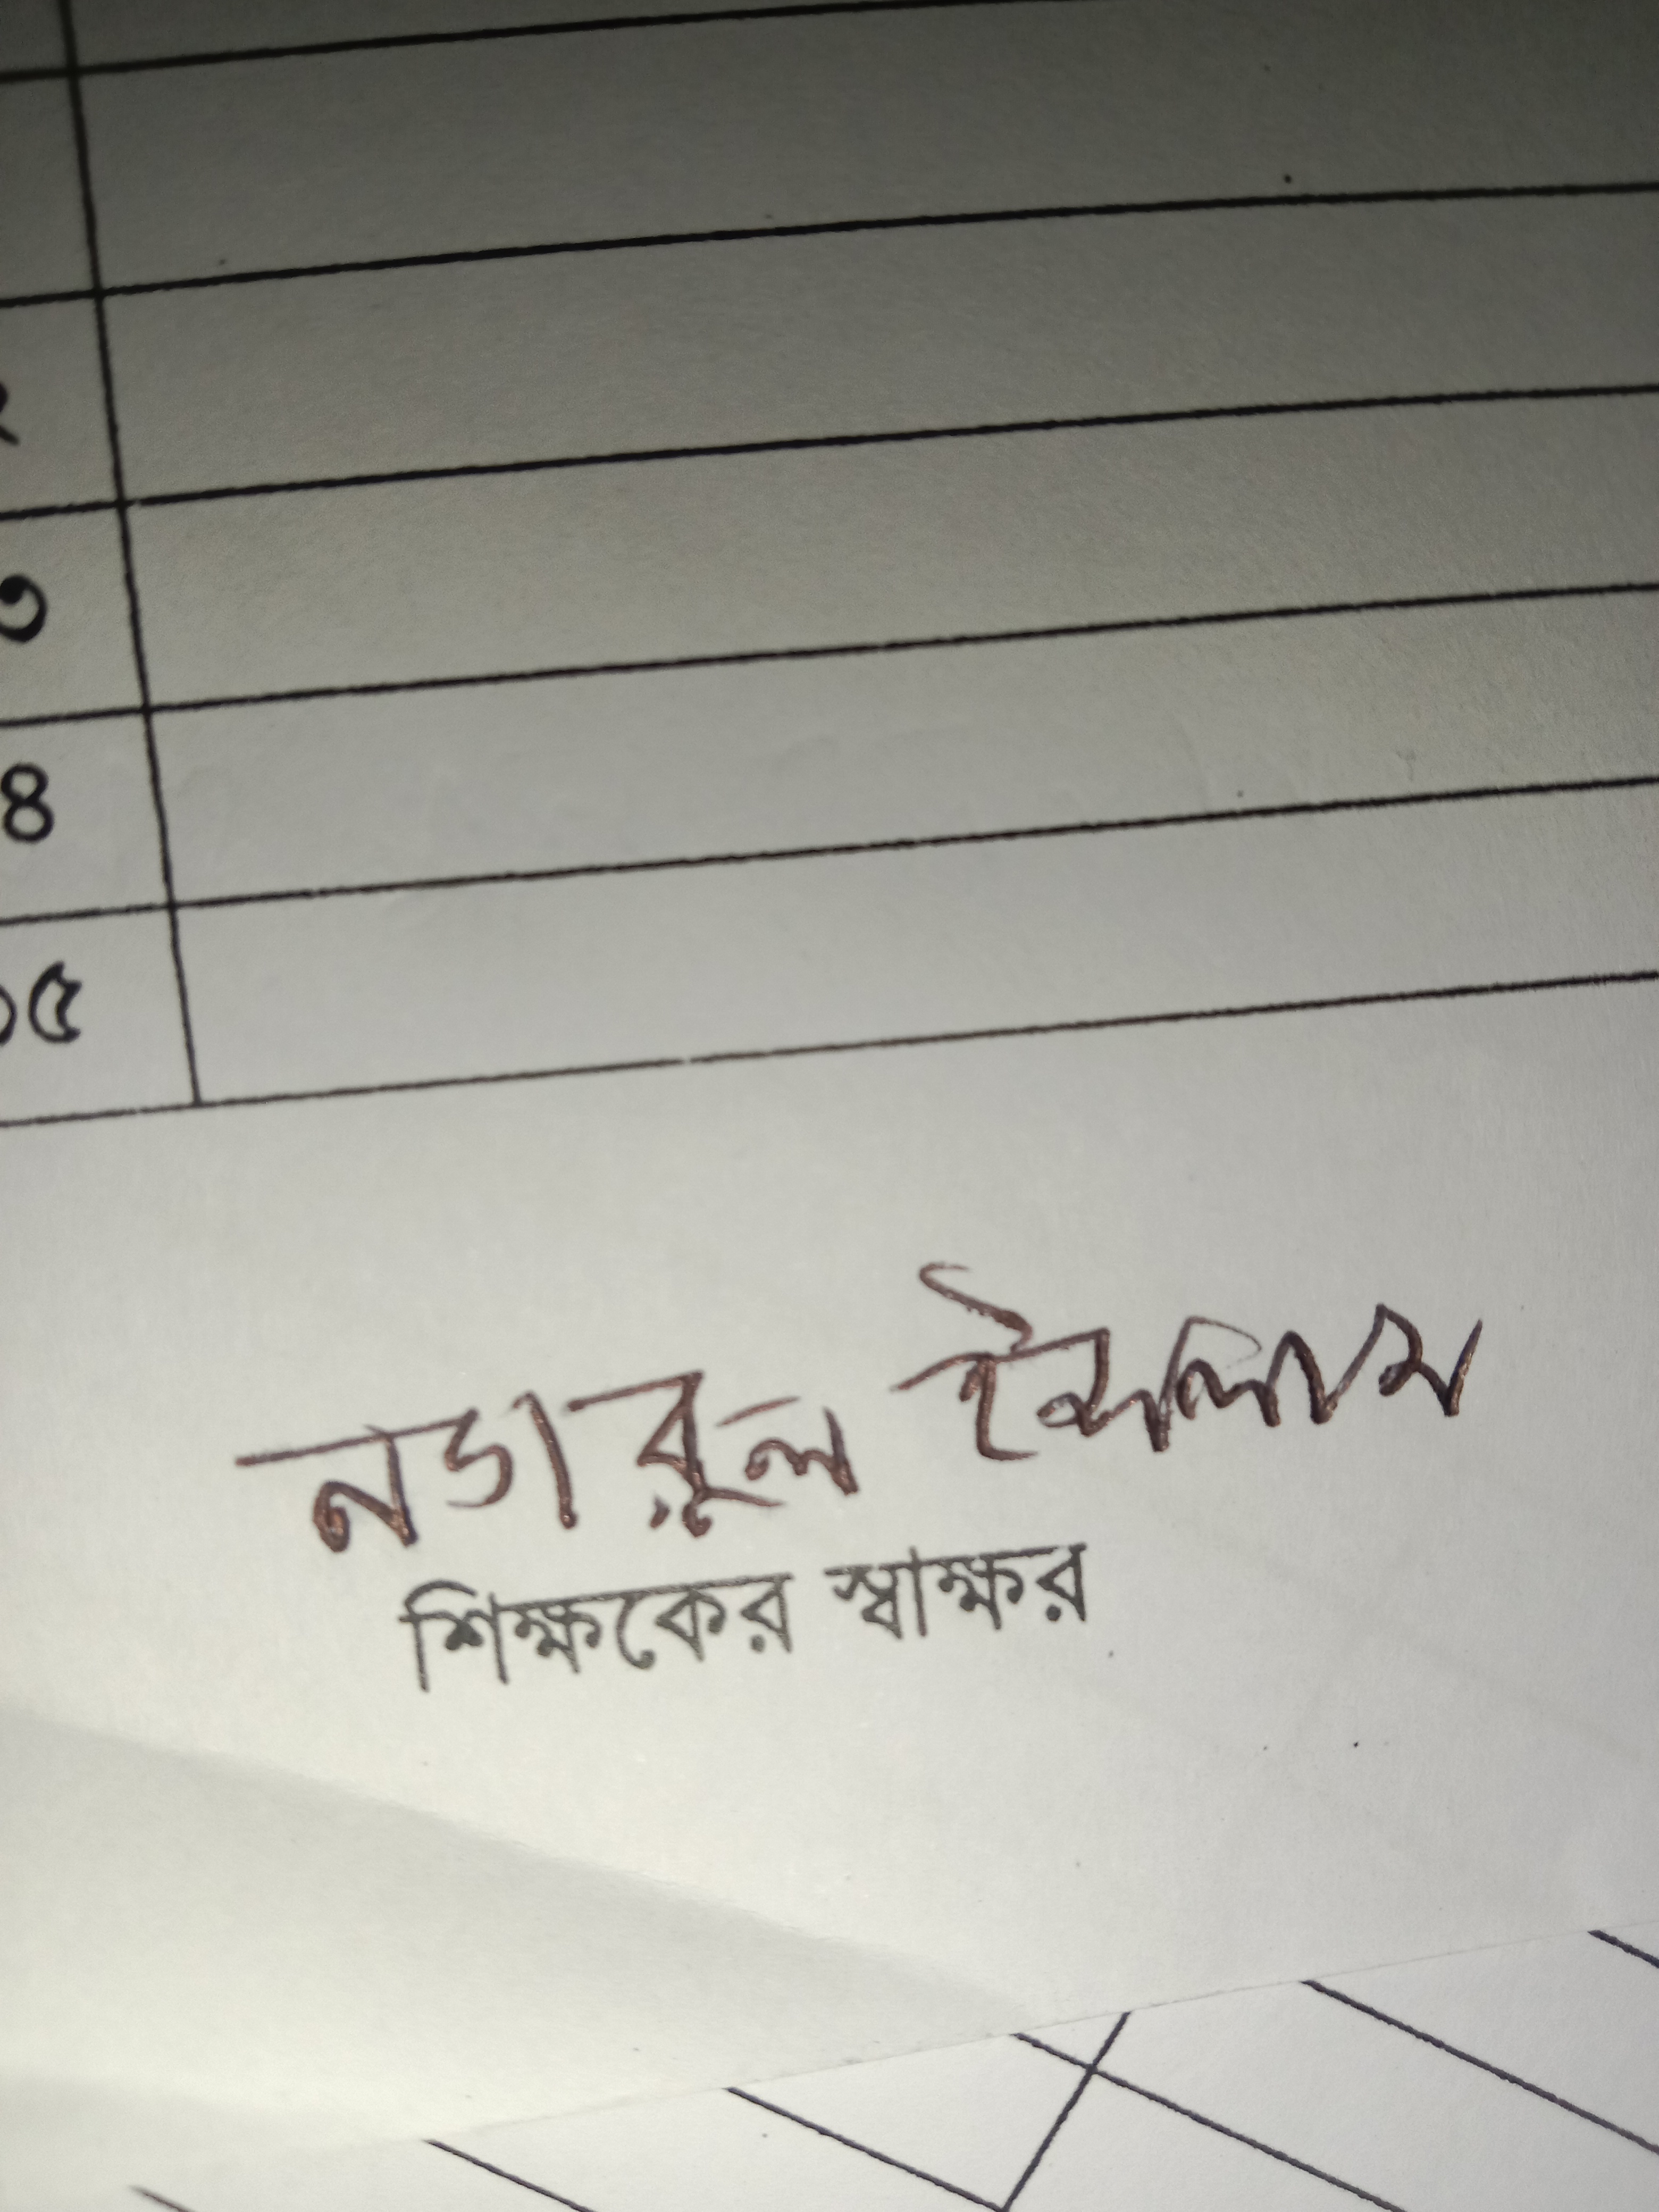 ৩
৪
১৫
নজারুল ইসলাম
শিক্ষকের স্বাক্ষর